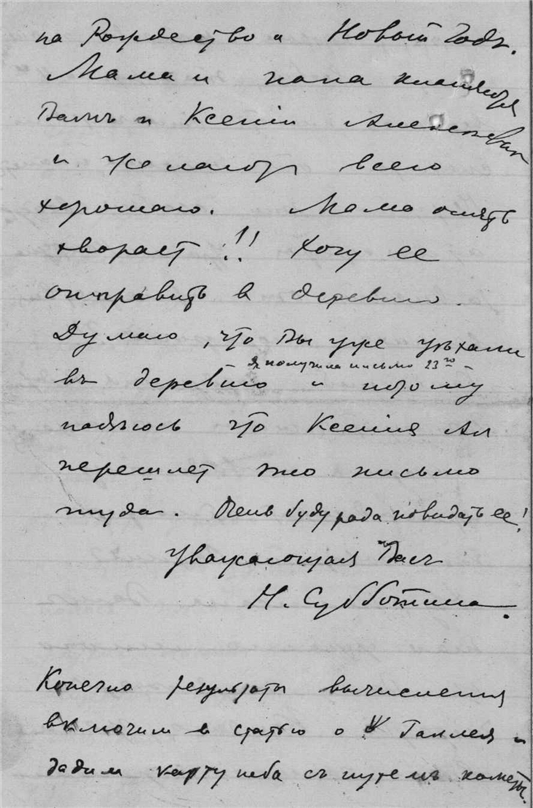 на Рождество и Новый Годъ.
Мама и папа кланяются
Вамъ и Ксеніи Александр.
и желают всего
хорошаго. Мама опять
хворает!! Хочу ее
отправить в деревню.
Думаю, что Вы уже уѣхали
я получила письмо 23го
въ деревню и потому
надѣюсь что Ксения Ал
перешлет это письмо
туда. Очень буду рада повидать ее!
Уважающая Васъ
Н. Субботина.
Конечно результаты вычисления
включим в статью о Галлея и
дадим карту неба съ путемъ кометы.